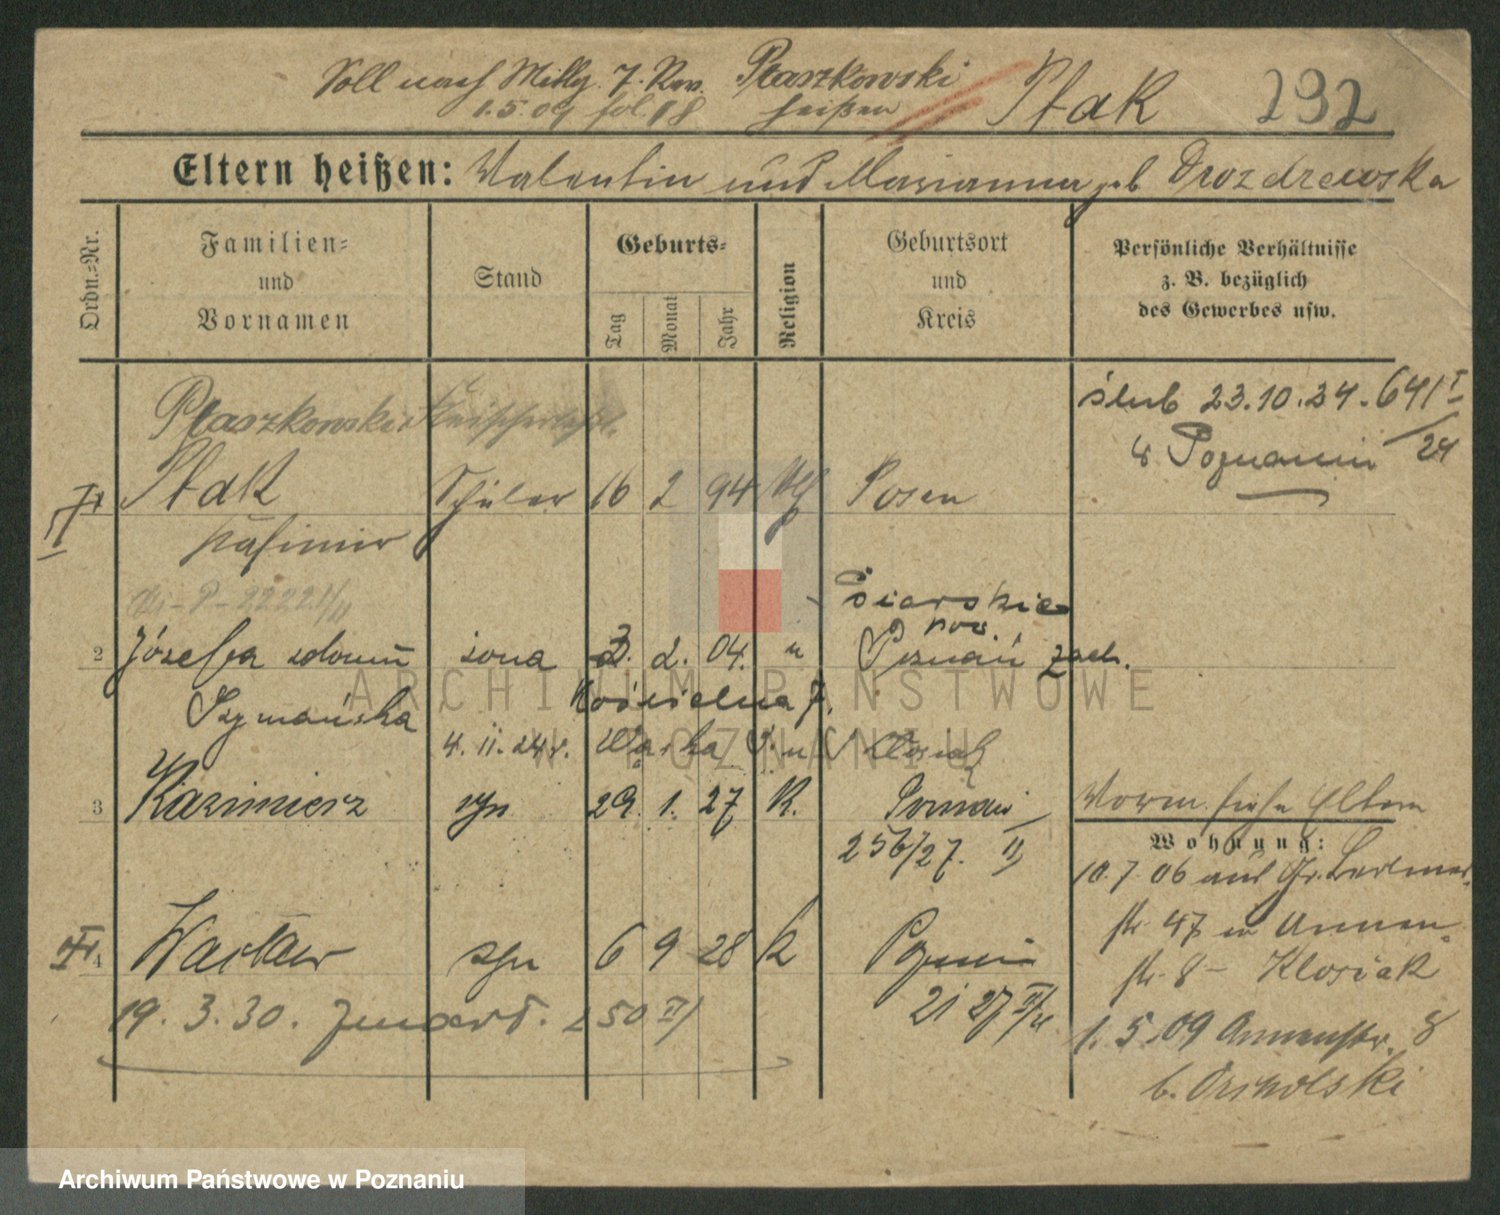 Soll nach Mittg. 7. Rev. Ptaszkowski Ptak 292
1.5.09 fol. 18 heißen
Eltern heißen: Valentin und Marianna geb Drozdrewska
Ordn.-Nr.
Familien-
und
Vornamen
Stand
Geburts-
Tag
Monat
Jahr
Religion
Geburtsort
und
Kreis
Persönliche Verhältnisse
z. B. bezüglich
des Gewerbes usw.
Ptaszkowski
ślub 23.10.24. 641 I
w Poznaniu 24
Ptak Schüler 16 2 94 Posen
Kasimir
2222
2 Józefa żona 3. 2. 04. " Poznań zach.
Szymańska Kościelna 7.
4. 11. 24r.
3 Kazimierz syn 29. 1. 27 K. Poznań
256/27. II
Vorm. siehe Eltern
Wohnung:
10. 7. 06 aus Gr. Berliner-
str. 47 n Annen-
str. 8 - Klosiak
1. 5. 09 Annenstr. 8
4 Wacław syn 6 9 28 K Poznań
19. 3. 30. 250 II/
Archiwum Państwowe w Poznaniu
ARCHIWUM PAŃSTWOWE
W POZNANIU